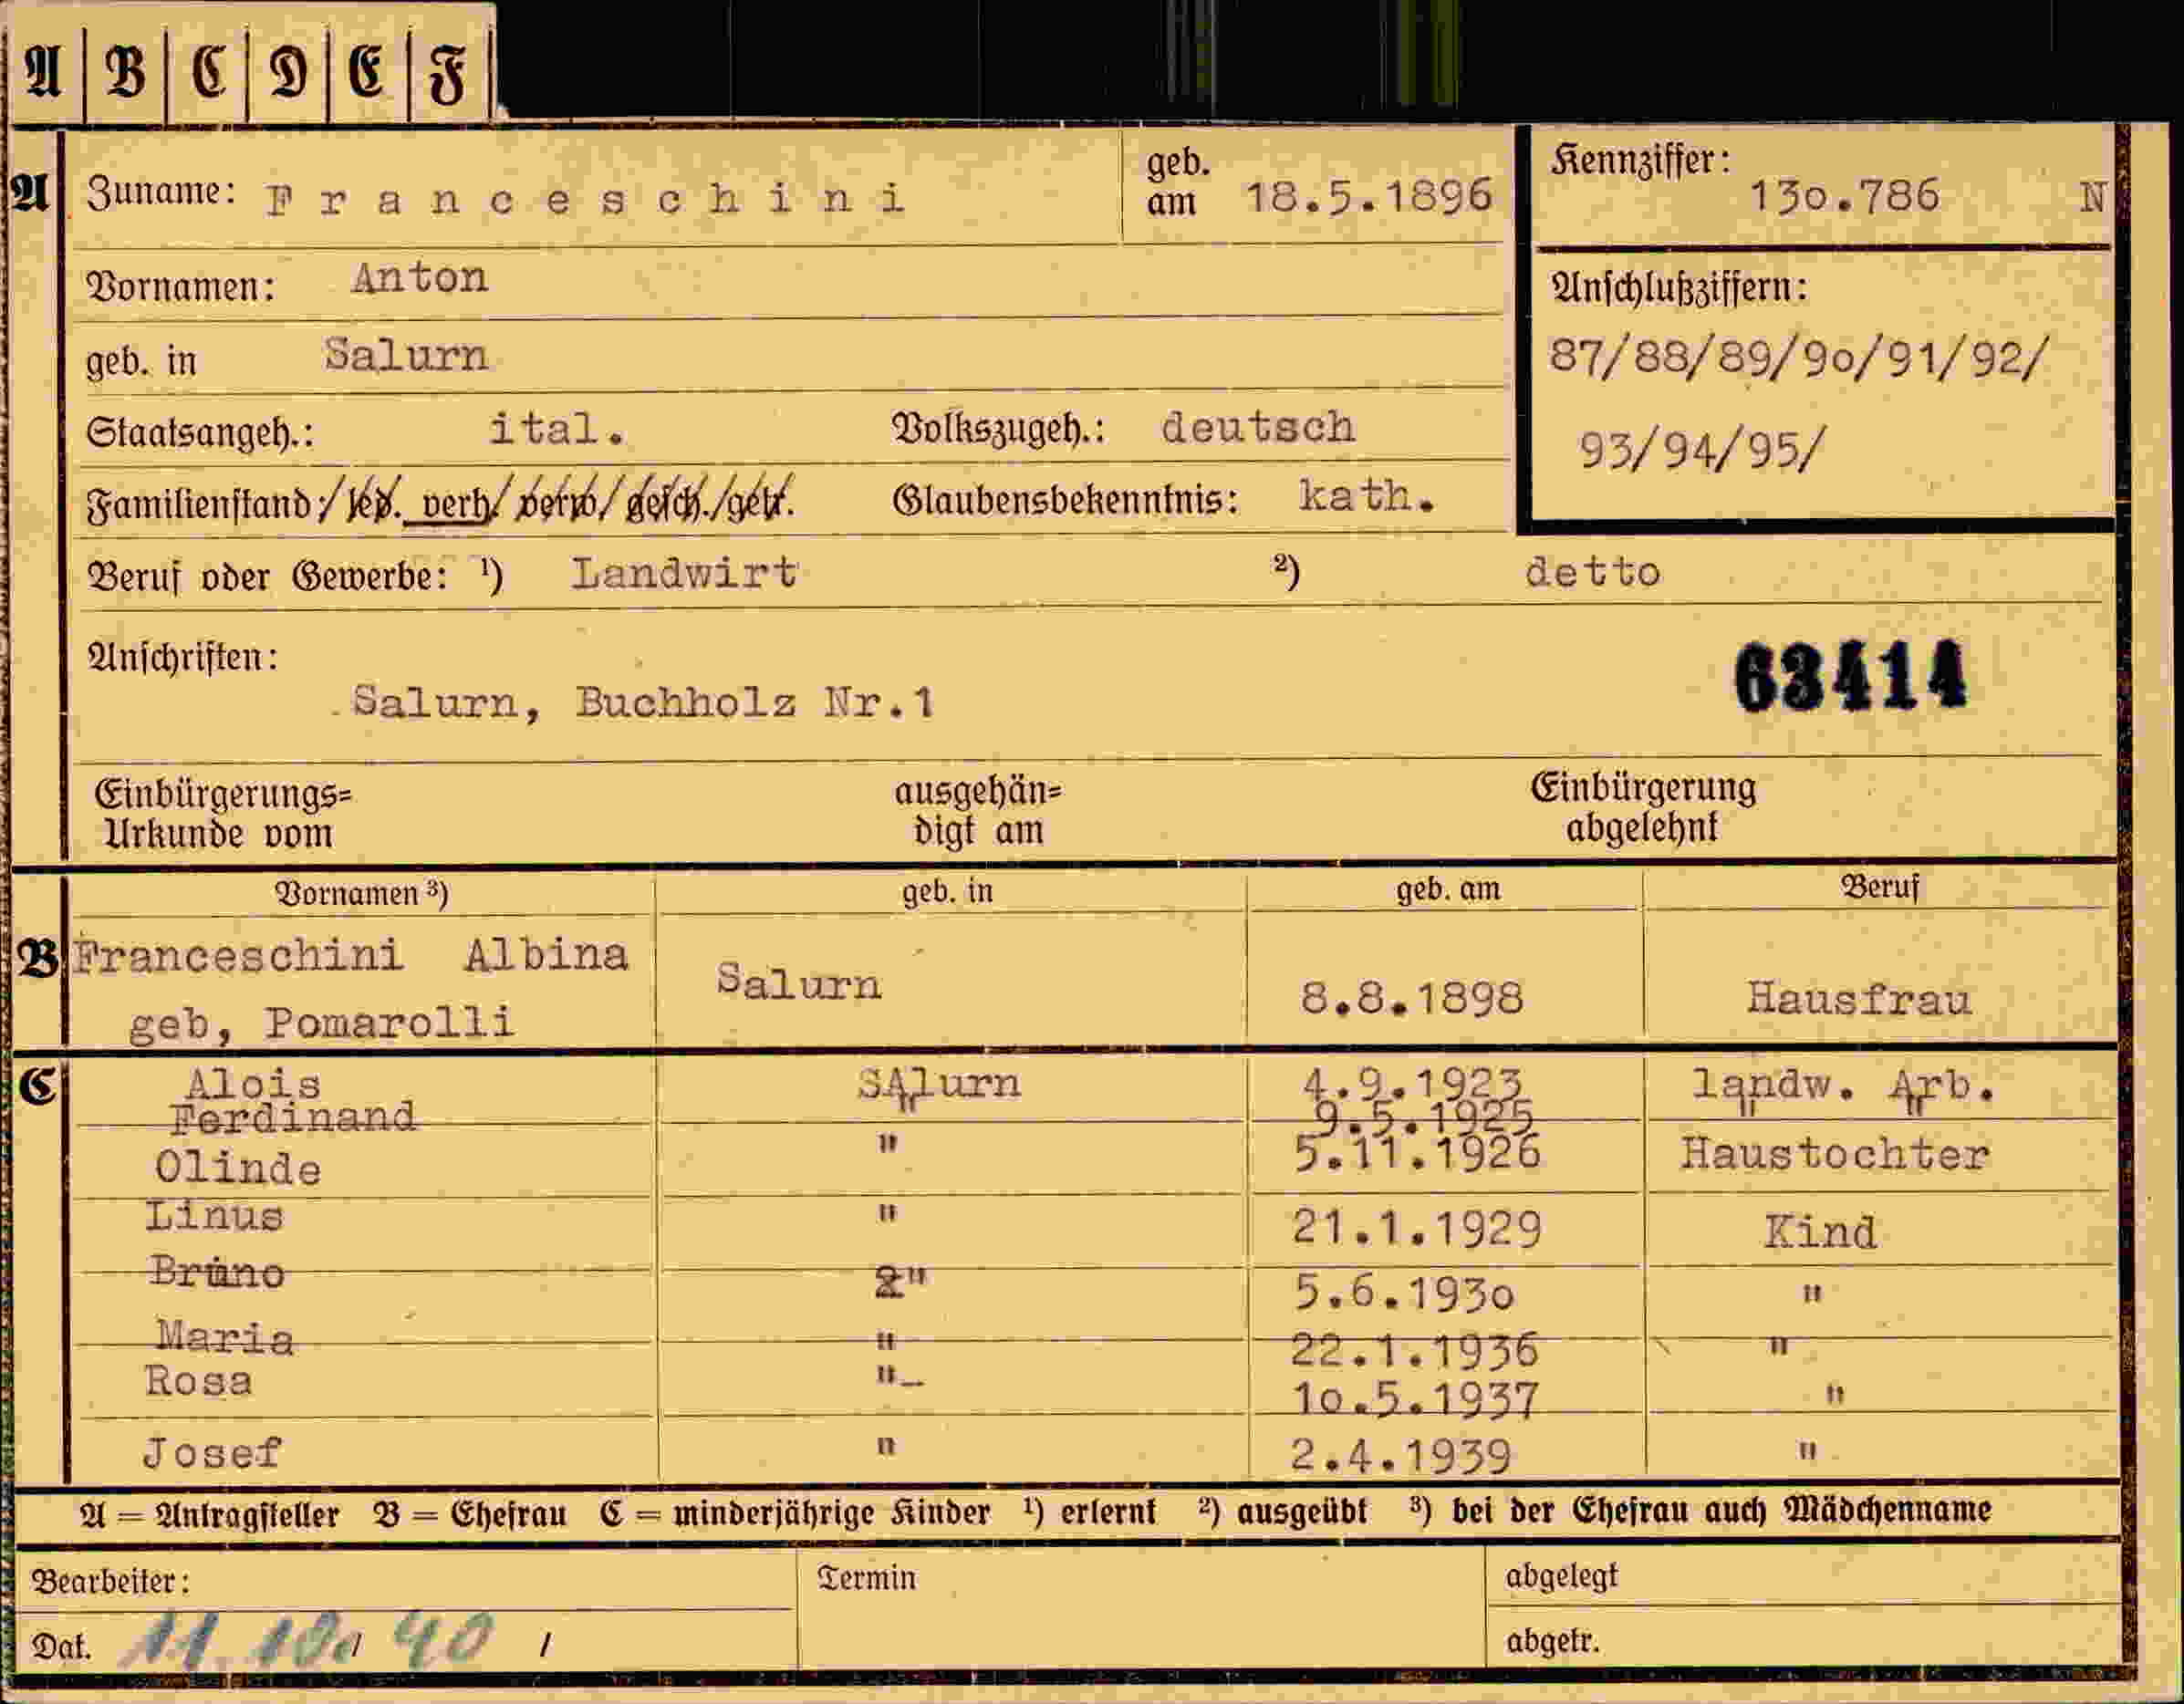 A B C D E F
A Zuname: Franceschini geb. am 18.5.1896 Kennziffer: 130.786 N
Vornamen: Anton
Anschlußziffern:
geb. in Salurn
87/88/89/90/91/92/
Staatsangeh.: ital. Volkszugeh.: deutsch
93/94/95/
Familienstand:/led. verh/ verw/ gesch./getr. Glaubensbekenntnis: kath.
Beruf oder Gewerbe: ¹) Landwirt ²) detto
Anschriften:
63414
Salurn, Buchholz Nr.1
Einbürgerungs= ausgehän= Einbürgerung
Urkunde vom digt am abgelehnt
Vornamen ³) geb. in geb. am Beruf
B Franceschini Albina
Salurn 8.8.1898 Hausfrau
geb, Pomarolli
C Alois SAlurn 4.9.1923 landw. Arb.
Ferdinand " 9.5.1925 " "
Olinde " 5.11.1926 Haustochter
Linus " 21.1.1929 Kind
Bruno " 5.6.1930 "
Maria " 22.1.1936 "
Rosa "- 10.5.1937 "
Josef " 2.4.1939 "
A = Antragsteller B = Ehefrau C = minderjährige Kinder ¹) erlernt ²) ausgeübt ³) bei der Ehefrau auch Mädchenname
Bearbeiter: Termin abgelegt
Dat. 11.10. 40 / abgetr.